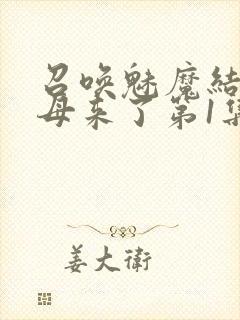 召唤魅魔结
母来了第1集
姜大衛